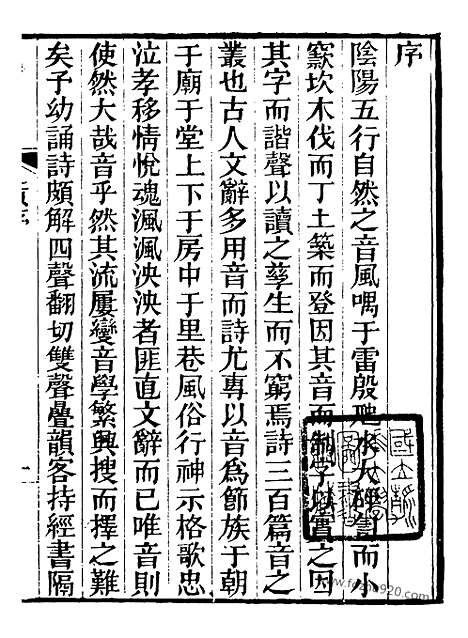 序
陰陽五行自然之音風喁于雷殷虺水大砰訇而小
窾坎木伐而丁土築而登因其音而制字以實之因
其字而諧聲以讀之孳生而不窮焉詩三百篇音之
叢也古人文辭多用音而詩尤專以音爲節族于朝
于廟于堂上下于房中于里巷風俗行神示格歌忠
泣孝移情悅魂渢渢泱泱者匪直文辭而已唯音則
使然大哉音乎然其流屢變音學繁興搜而擇之難
矣予幼誦詩頗解四聲翻切雙聲疊韻客持經書隔
www.fozhu920.com